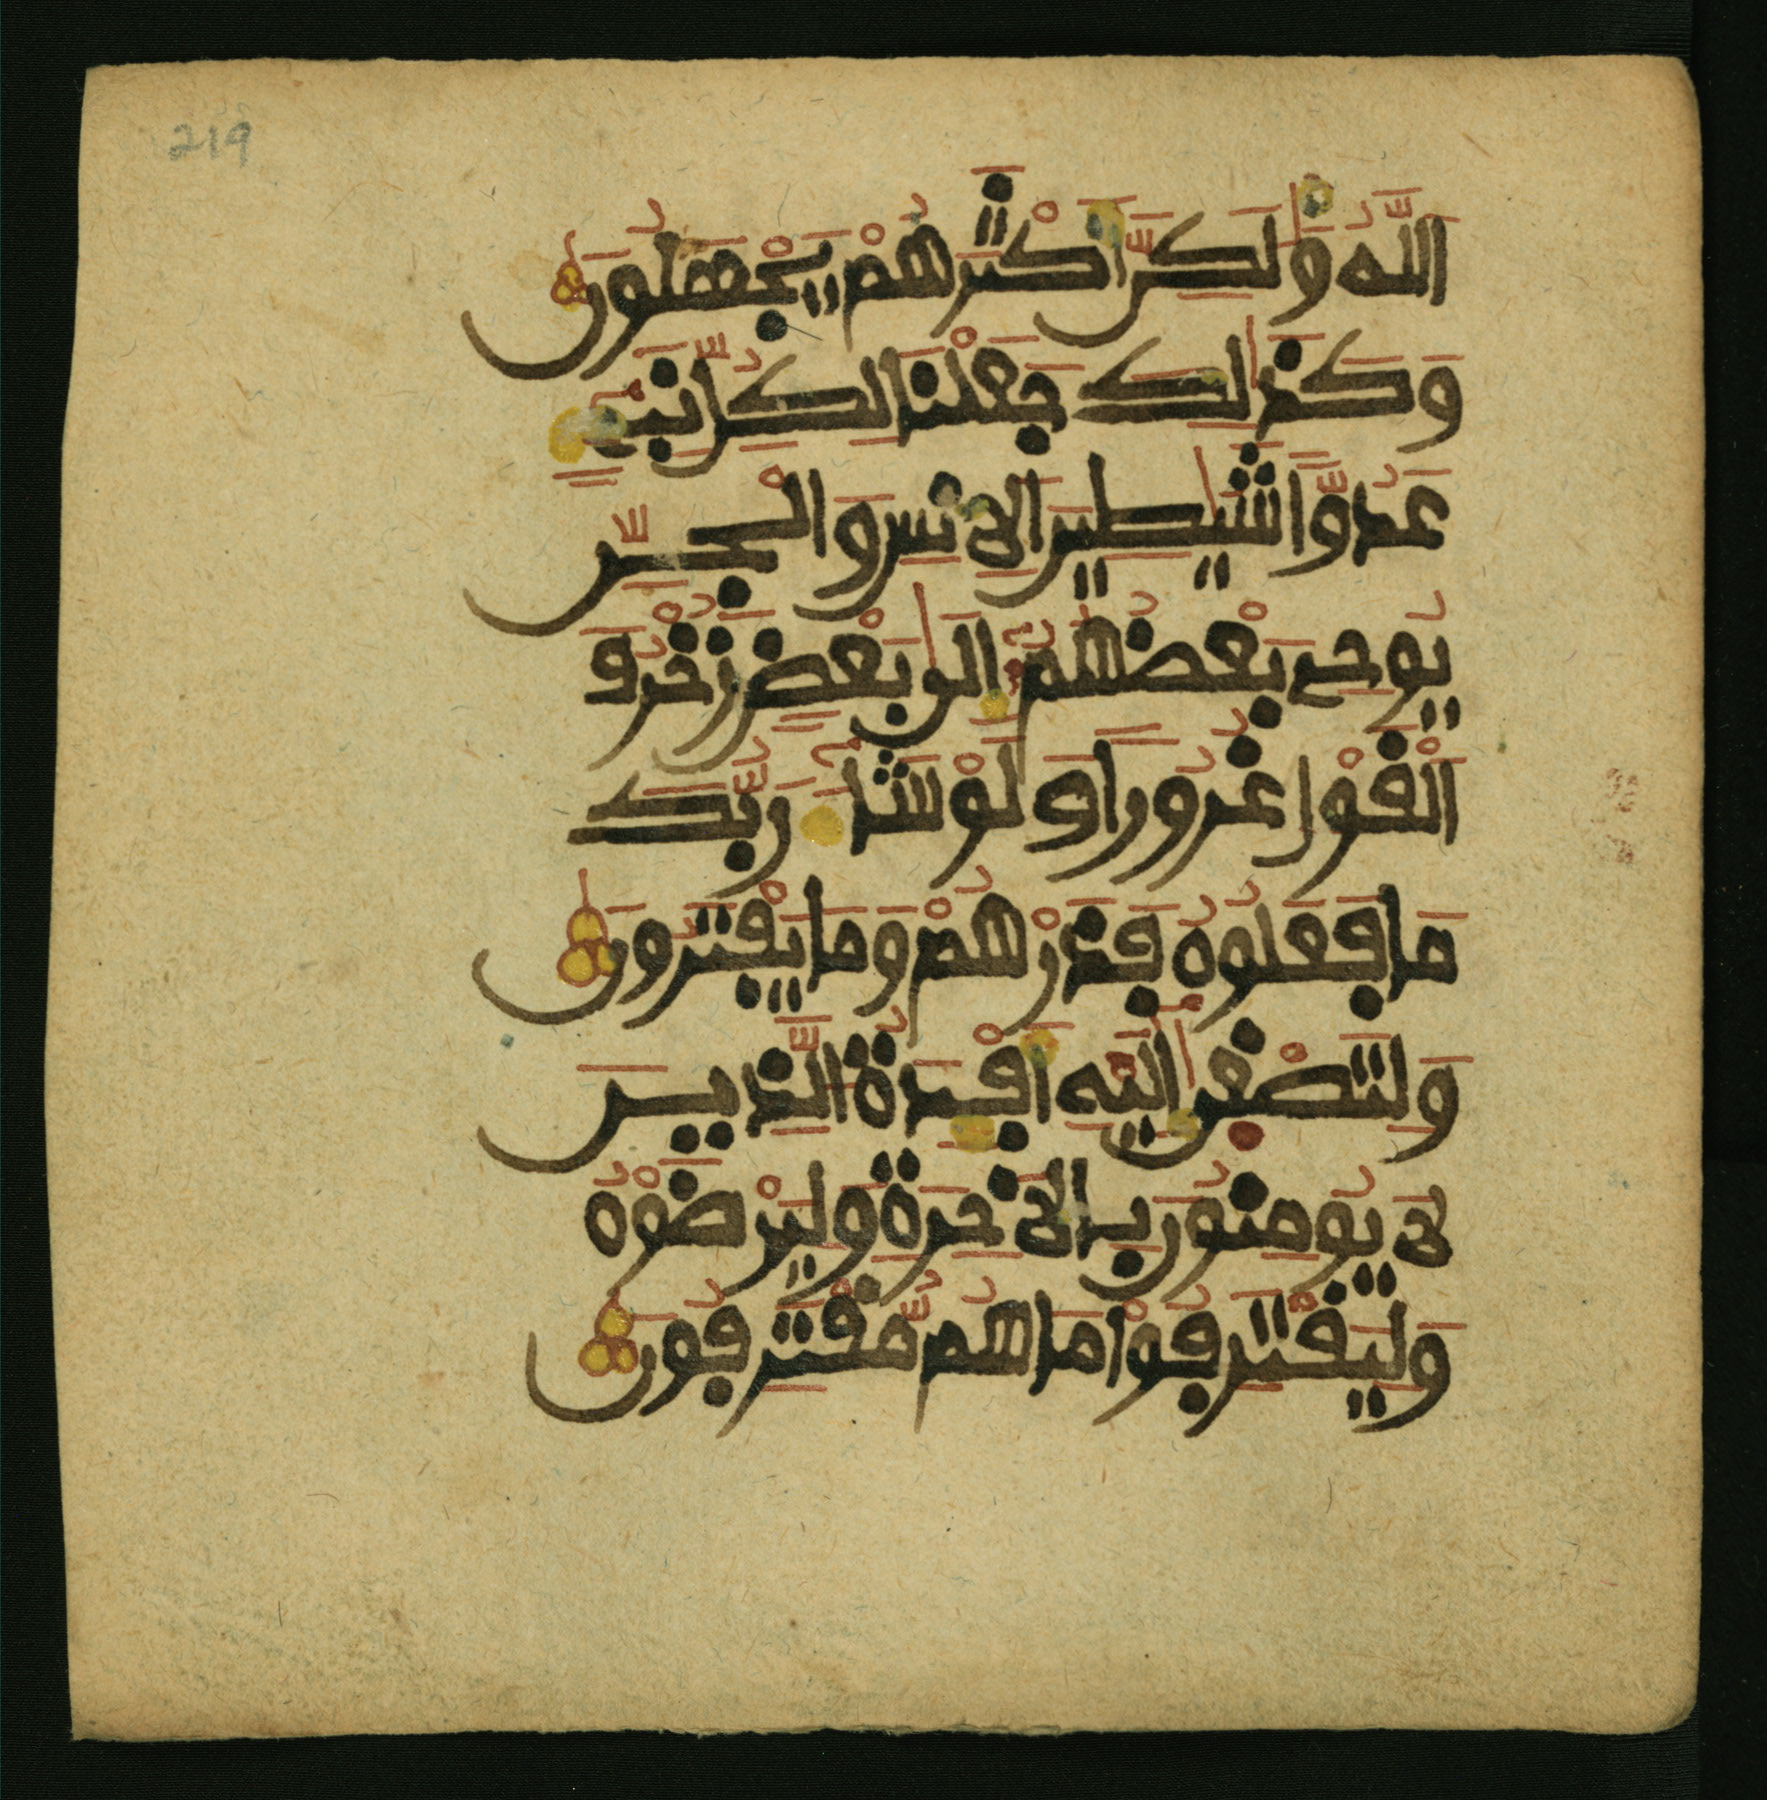 219
اللَّهُ وَلَٰكِنَّ أَكْثَرَهُمْ يَجْهَلُونَ
وَكَذَٰلِكَ جَعَلْنَا لِكُلِّ نَبِيٓءٍ
عَدُوًّا شَيَٰطِينَ الِانسِ وَالْجِنِّ
يُوحِي بَعْضُهُمُۥٓ إِلَىٰ بَعْضٍ زُخْرُفَ
الْقَوْلِ غُرُورًا وَلَوْ شَآءَ رَبُّكَ
مَا فَعَلُوهُ فَذَرْهُمْ وَمَا يَفْتَرُونَ
وَلِتَصْغَىٰٓ إِلَيْهِ أَفْـِٕدَةُ الَّذِينَ
لَا يُومِنُونَ بِالَاخِرَةِ وَلِيَرْضَوْهُ
وَلِيَقْتَرِفُوا مَا هُم مُّقْتَرِفُونَ